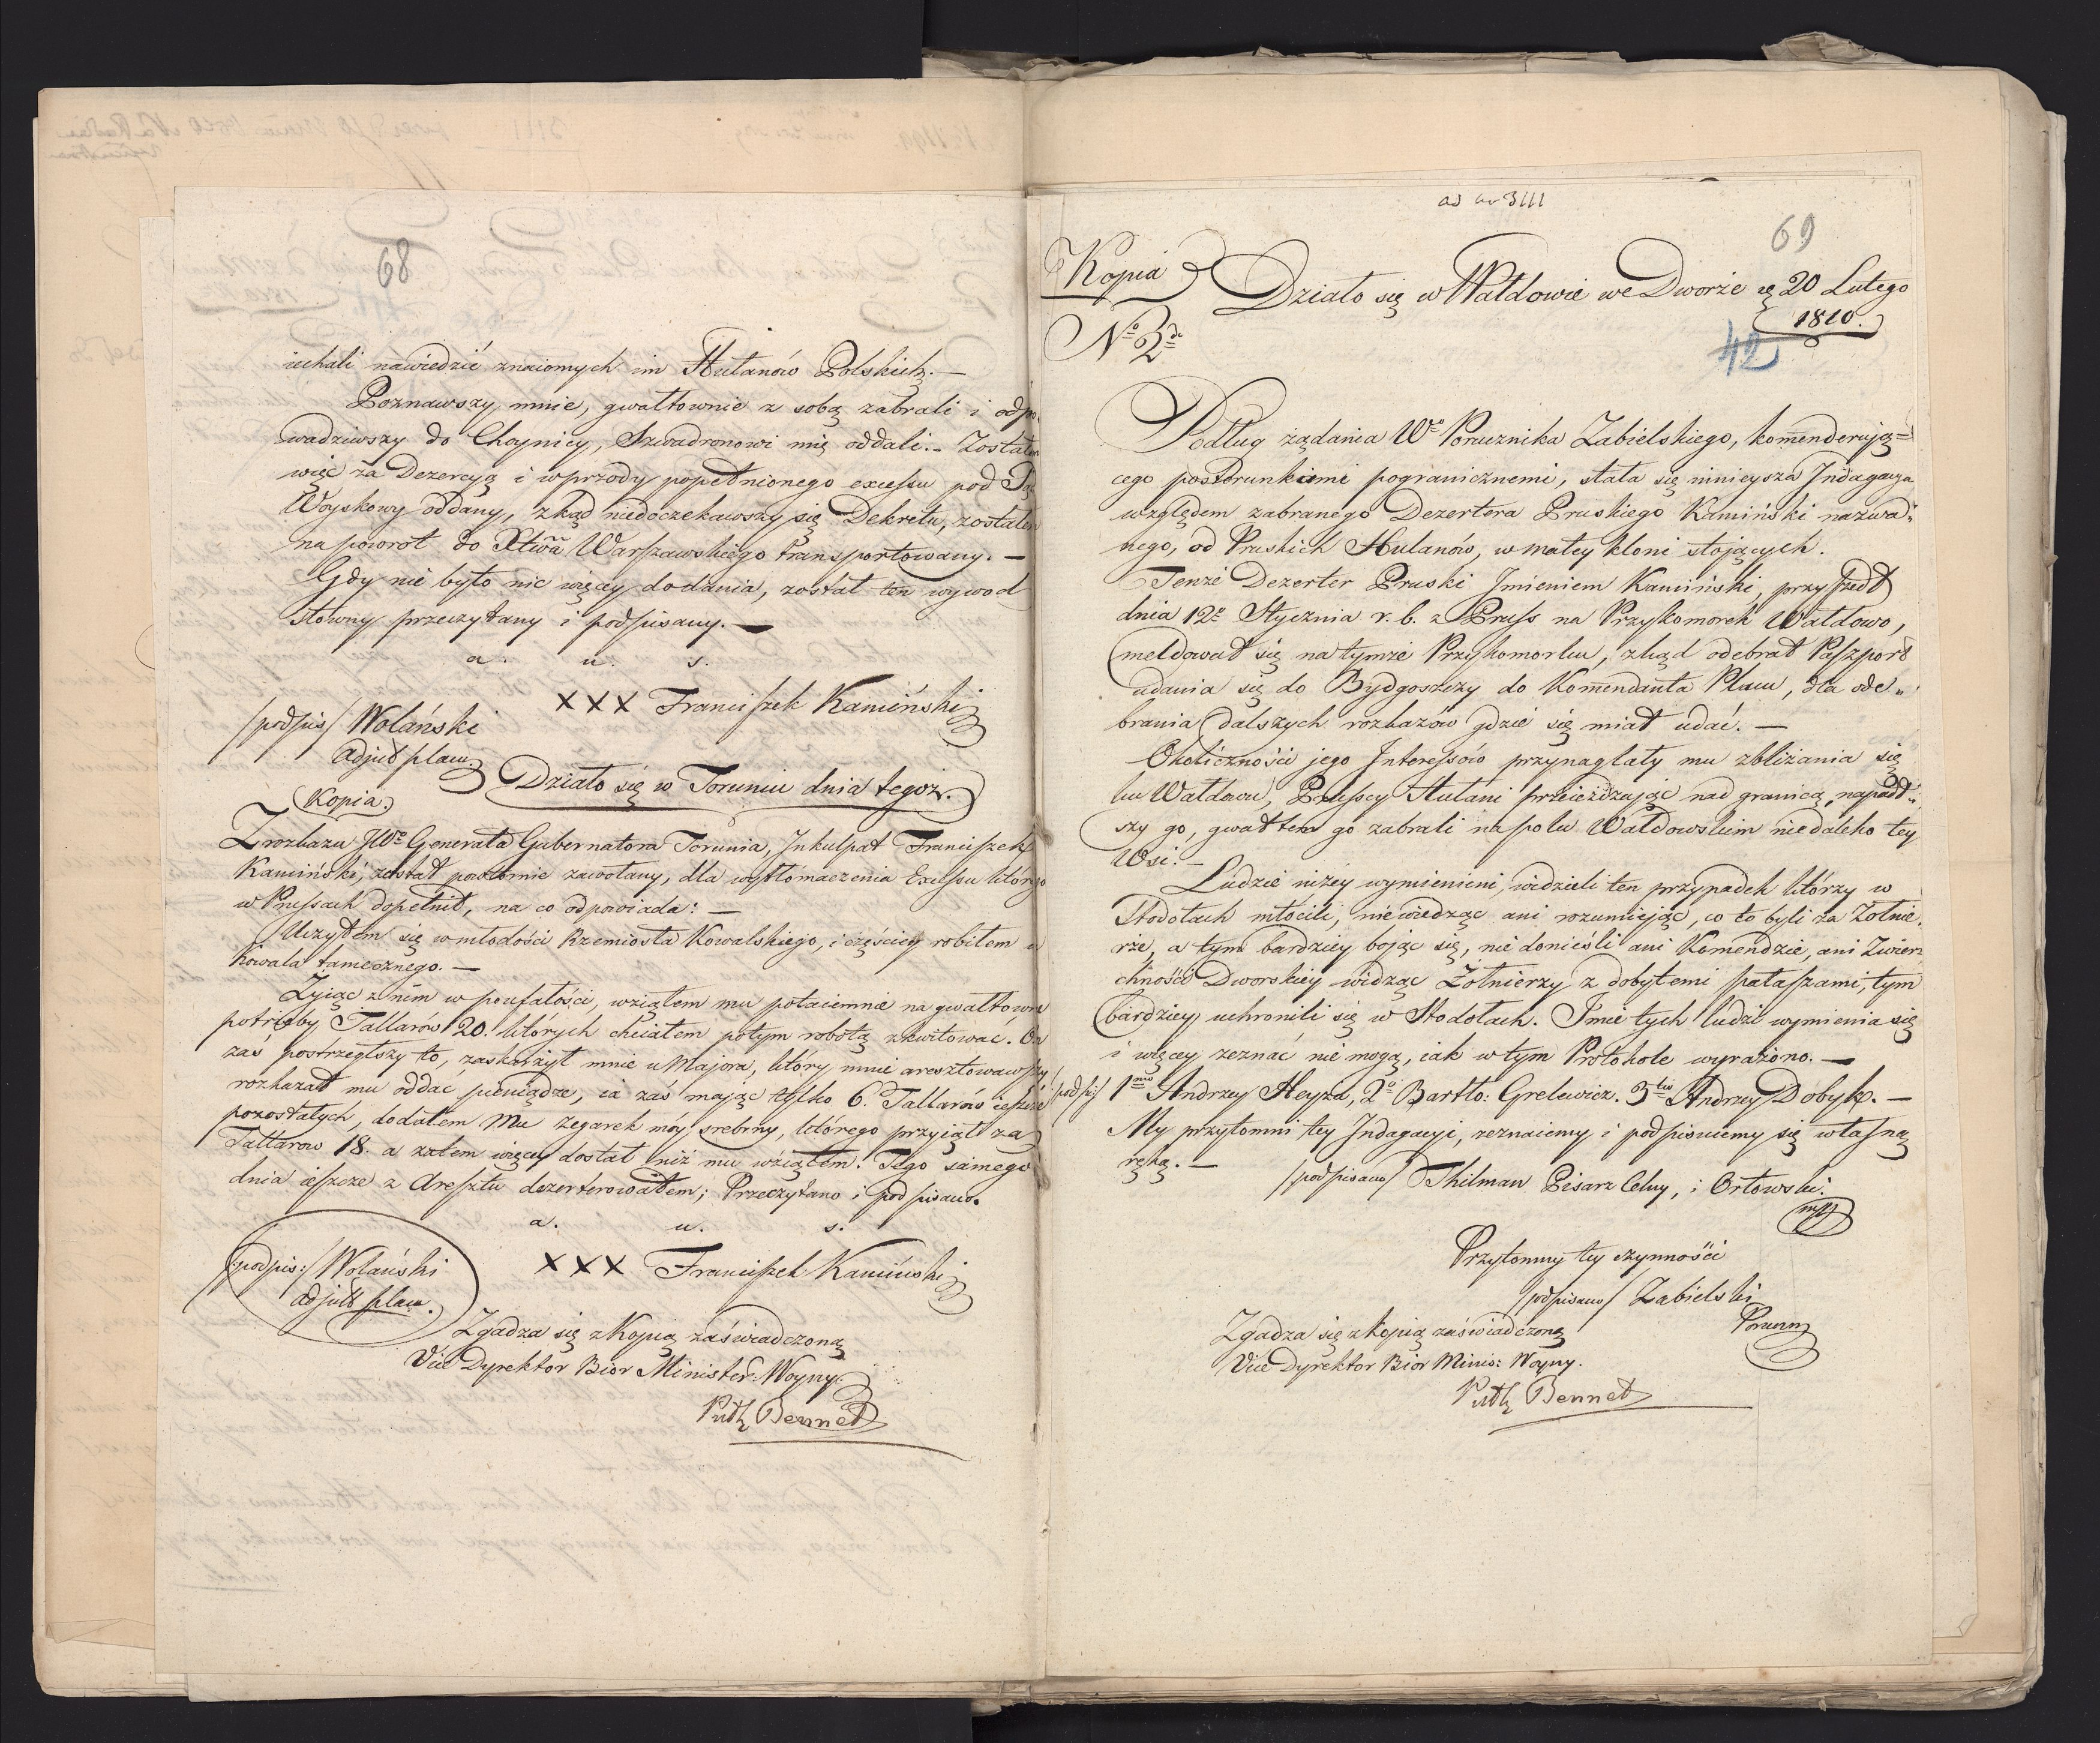 68
iechali nawiedzić znaiomych im Hułanów Polskich. —
Poznawszy mnie, gwałtownie z sobą zabrali i odpo
wadziwszy do Choynicy, Szwadronowi mię oddali. – Zostałem
więc za Dezercyą i wprzody popełnionego excessu pod
Woyskowy oddany, zkąd niedoczekawszy się Dekretu, zostałem
na powrot do Xtwa Warszawskiego transportowany. —
Gdy nie było nic więcey dodania, został ten wywod
słowny przeczytany i podpisany. —
a. u. s.
XXX Franciszek Kamiński
/podpis/ Wolański
Adjut placu.
Działo się w Toruniu dnia tegoż.
Kopia.
Z rozkazu JWo Generała Gubernatora Torunia, Inkulpat Franciszek
Kamiński, został powtornie zawołany, dla wytłómaczenia Excessu którego
w Prussach dopełnił, na co odpowiada: —
Uczyłem się w młodości Rzemiosła Kowalskiego, i częściey robiłem u
Kowala tamecznego. —
Żyiąc z nim w poufałości, wziąłem mu potaiemnie na gwałtowne
potrzeby Tallarów 20. których chciałem potym robotą zkwitować. On
zaś postrzegłszy to, zaskarżył mnie u Majora, który mnie aresztowawszy
rozkazał mu oddać pieniądze, ia zaś mając tylko 6. Tallarów ieszcze
pozostałych, dodałem Mu zegarek móy srebrny, którego przyiął za
Tallarow 18. a zatem więcey dostał niż mu wziąłem. Tego samego
dnia ieszcze z Aresztu dezerterowałem; Przeczytano i podpisano.
a. u. s.
XXX Franciszek Kamiński
/podpis:/ Wolański
adjut placu.
Zgadza się z Kopią zaświadczoną
Vice Dyrektor Biór Minister: Woyny.
Pułk Bennet
ad no 3111
69
Kopia
No 2do
Działo się w Wałdowie we Dworze d. 20 Lutego
1810.
42
Podług żądania Wo Porucznika Zabielskiego, kommenderują=
cego postórunkiemi pogranicznemi, stała się ninieysza Indagacya
względem zabranego Dezertera Pruskiego Kamiński nazwa„
nego, od Pruskich Hułanów, w małey kloni stojących.
Tenże Dezerter Pruski Imieniem Kamiński, przyszedł
dnia 12o Stycznia r. b. z Pruss na Przykomorek Wałdowo,
meldował się na tymże Przykomorku, zkąd odebrał Paszport
udania się do Bydgoszczy do Kommendanta Placu, dla ode„
brania dalszych rozkazów gdzie się miał udać. —
Okoliczności jego Interessów przynaglały mu zbliżania się
ku Wałdowu, Prusscy Hułani przeieżdzając nad granicą, napadł„
szy go, gwałtem go zabrali na polu Wałdowskim niedaleko tey
Wsi. —
Ludzie niżey wymienieni, widzieli ten przypadek którzy w
Stodołach młócili, nie wiedząc ani rozumiejąc, co to byli za Żołnie„
rże, a tym bardziey bojąc się, nie donieśli ani Komendzie, ani Zwierz
chności Dworskiey widząc Żołnierzy z dobytemi pałaszami, tym
bardziey uchronili się w Stodołach. Imie tych ludzi wymienia się
i więcey zeznać nie mogą, iak w tym Protokole wyrażono. —
/podpis/ 1mo Andrzey Heyza, 2o Bartło: Grelewicz. 3tio Andrzey Dobysz. —
My przytomni tey Indagacyi, zeznaiemy i podpisuiemy się własną
ręką. — /podpisano/ Thilman Pisarz Celny, i Orłowski.
mp
Przytomny tey czynności
/podpisano/ Zabielski
Porucznik
Zgadza się z kopią zaświadczoną
Vice Dyrektor Biór Minis: Woyny.
Pułk Bennet